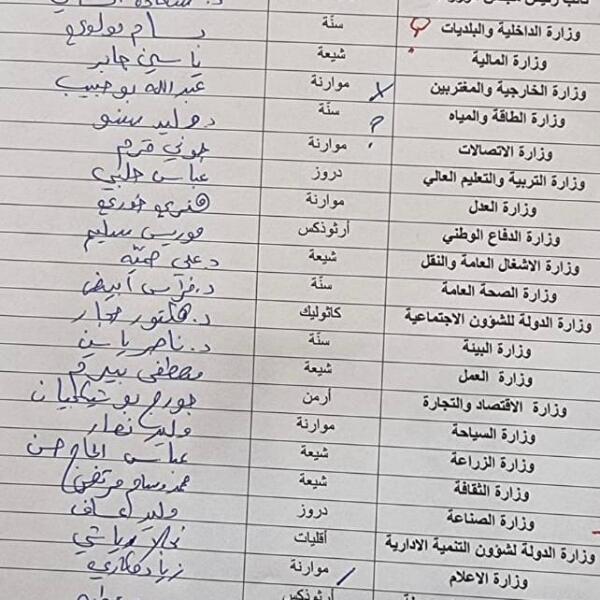 وزارة الداخلية والبلديات سنّة بسام مولوي
وزارة المالية شيعة ياسين جابر
وزارة الخارجية والمغتربين موارنة عبد الله بو حبيب
وزارة الطاقة والمياه سنّة د. وليد سنو
وزارة الاتصالات موارنة جوني قرم
وزارة التربية والتعليم العالي دروز عباس حلبي
وزارة العدل موارنة هنري خوري
وزارة الدفاع الوطني أرثوذكس موريس سليم
وزارة الاشغال العامة والنقل شيعة د. علي حميّه
وزارة الصحة العامة سنّة د. فراس أبيض
وزارة الدولة للشؤون الاجتماعية كاثوليك د. هكتور حجار
وزارة البيئة سنّة د. ناصر ياسين
وزارة العمل شيعة مصطفى بيرم
وزارة الاقتصاد والتجارة أرمن جورج بوشيكيان
وزارة السياحة موارنة وليد نصار
وزارة الزراعة شيعة عباس الحاج حسن
وزارة الثقافة شيعة محمد وسام مرتضى
وزارة الصناعة دروز وليد عساف
وزارة الدولة لشؤون التنمية الادارية أقليات نجلا رياشي
وزارة الاعلام موارنة زياد مكاري
أرثوذكس